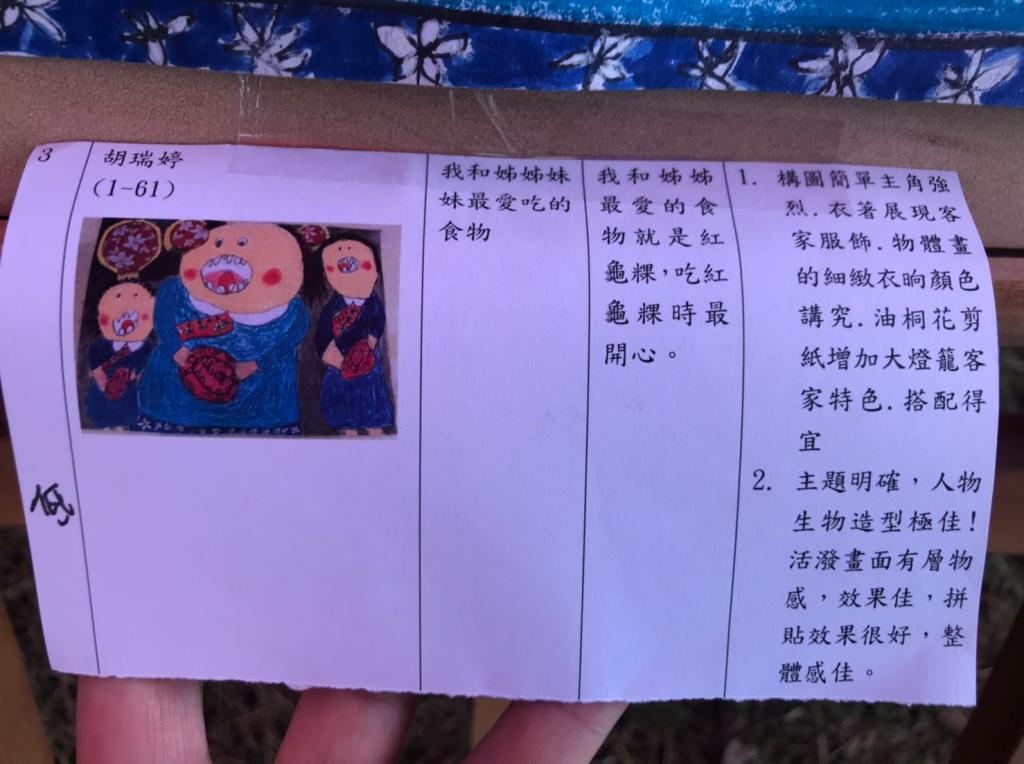 3
胡瑞婷
(1-61)
我和姊姊妹
妹最愛吃的
食物
我和姊姊
最愛的食
物就是紅
龜粿，吃紅
龜粿時最
開心。
1. 構圖簡單主角強
烈．衣著展現客
家服飾．物體畫
的細緻衣晌顏色
講究．油桐花剪
紙增加大燈籠客
家特色．搭配得
宜
2. 主題明確，人物
生物造型極佳！
活潑畫面有層物
感，效果佳，拼
貼效果很好，整
體感佳。